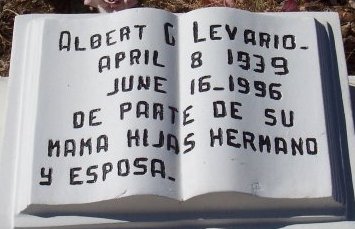 ALBERT G LEVARIO-
APRIL 8 1939
JUNE 16-1996
DE PARTE DE SU
MAMA HIJAS HERMANO
Y ESPOSA-